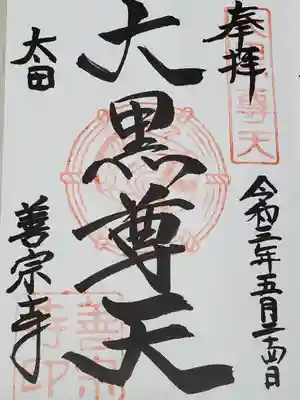 奉拝
大黒尊天
令和三年五月二十四日
大黒尊天
太田
善宗寺
善宗
寺印